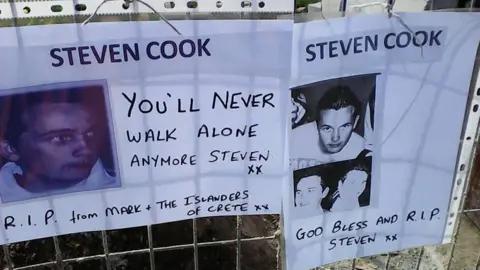 STEVEN COOK
YOU'LL NEVER
WALK ALONE
ANYMORE STEVEN
xx
R.I.P. from MARK + THE ISLANDERS
OF CRETE xx
STEVEN COOK
GOD BLESS AND R.I.P.
STEVEN xx